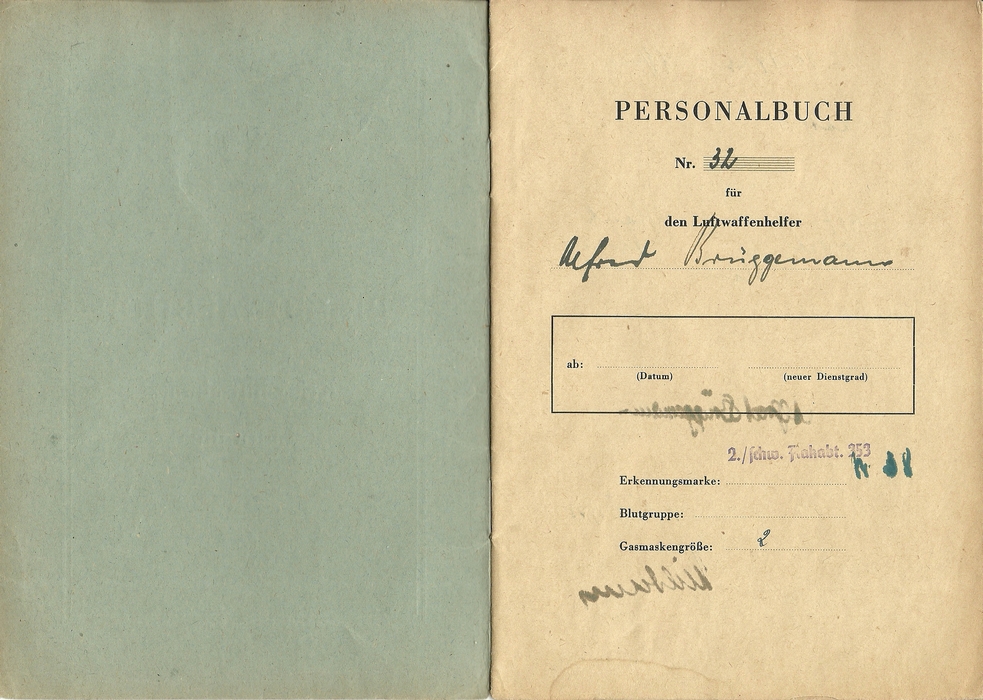 PERSONALBUCH
Nr. 32
für
den Luftwaffenhelfer
Alfred Brüggemann
ab:
(Datum) (neuer Dienstgrad)
2./schw. Flakabt. 353
Erkennungsmarke:
Blutgruppe:
Gasmaskengröße: 2